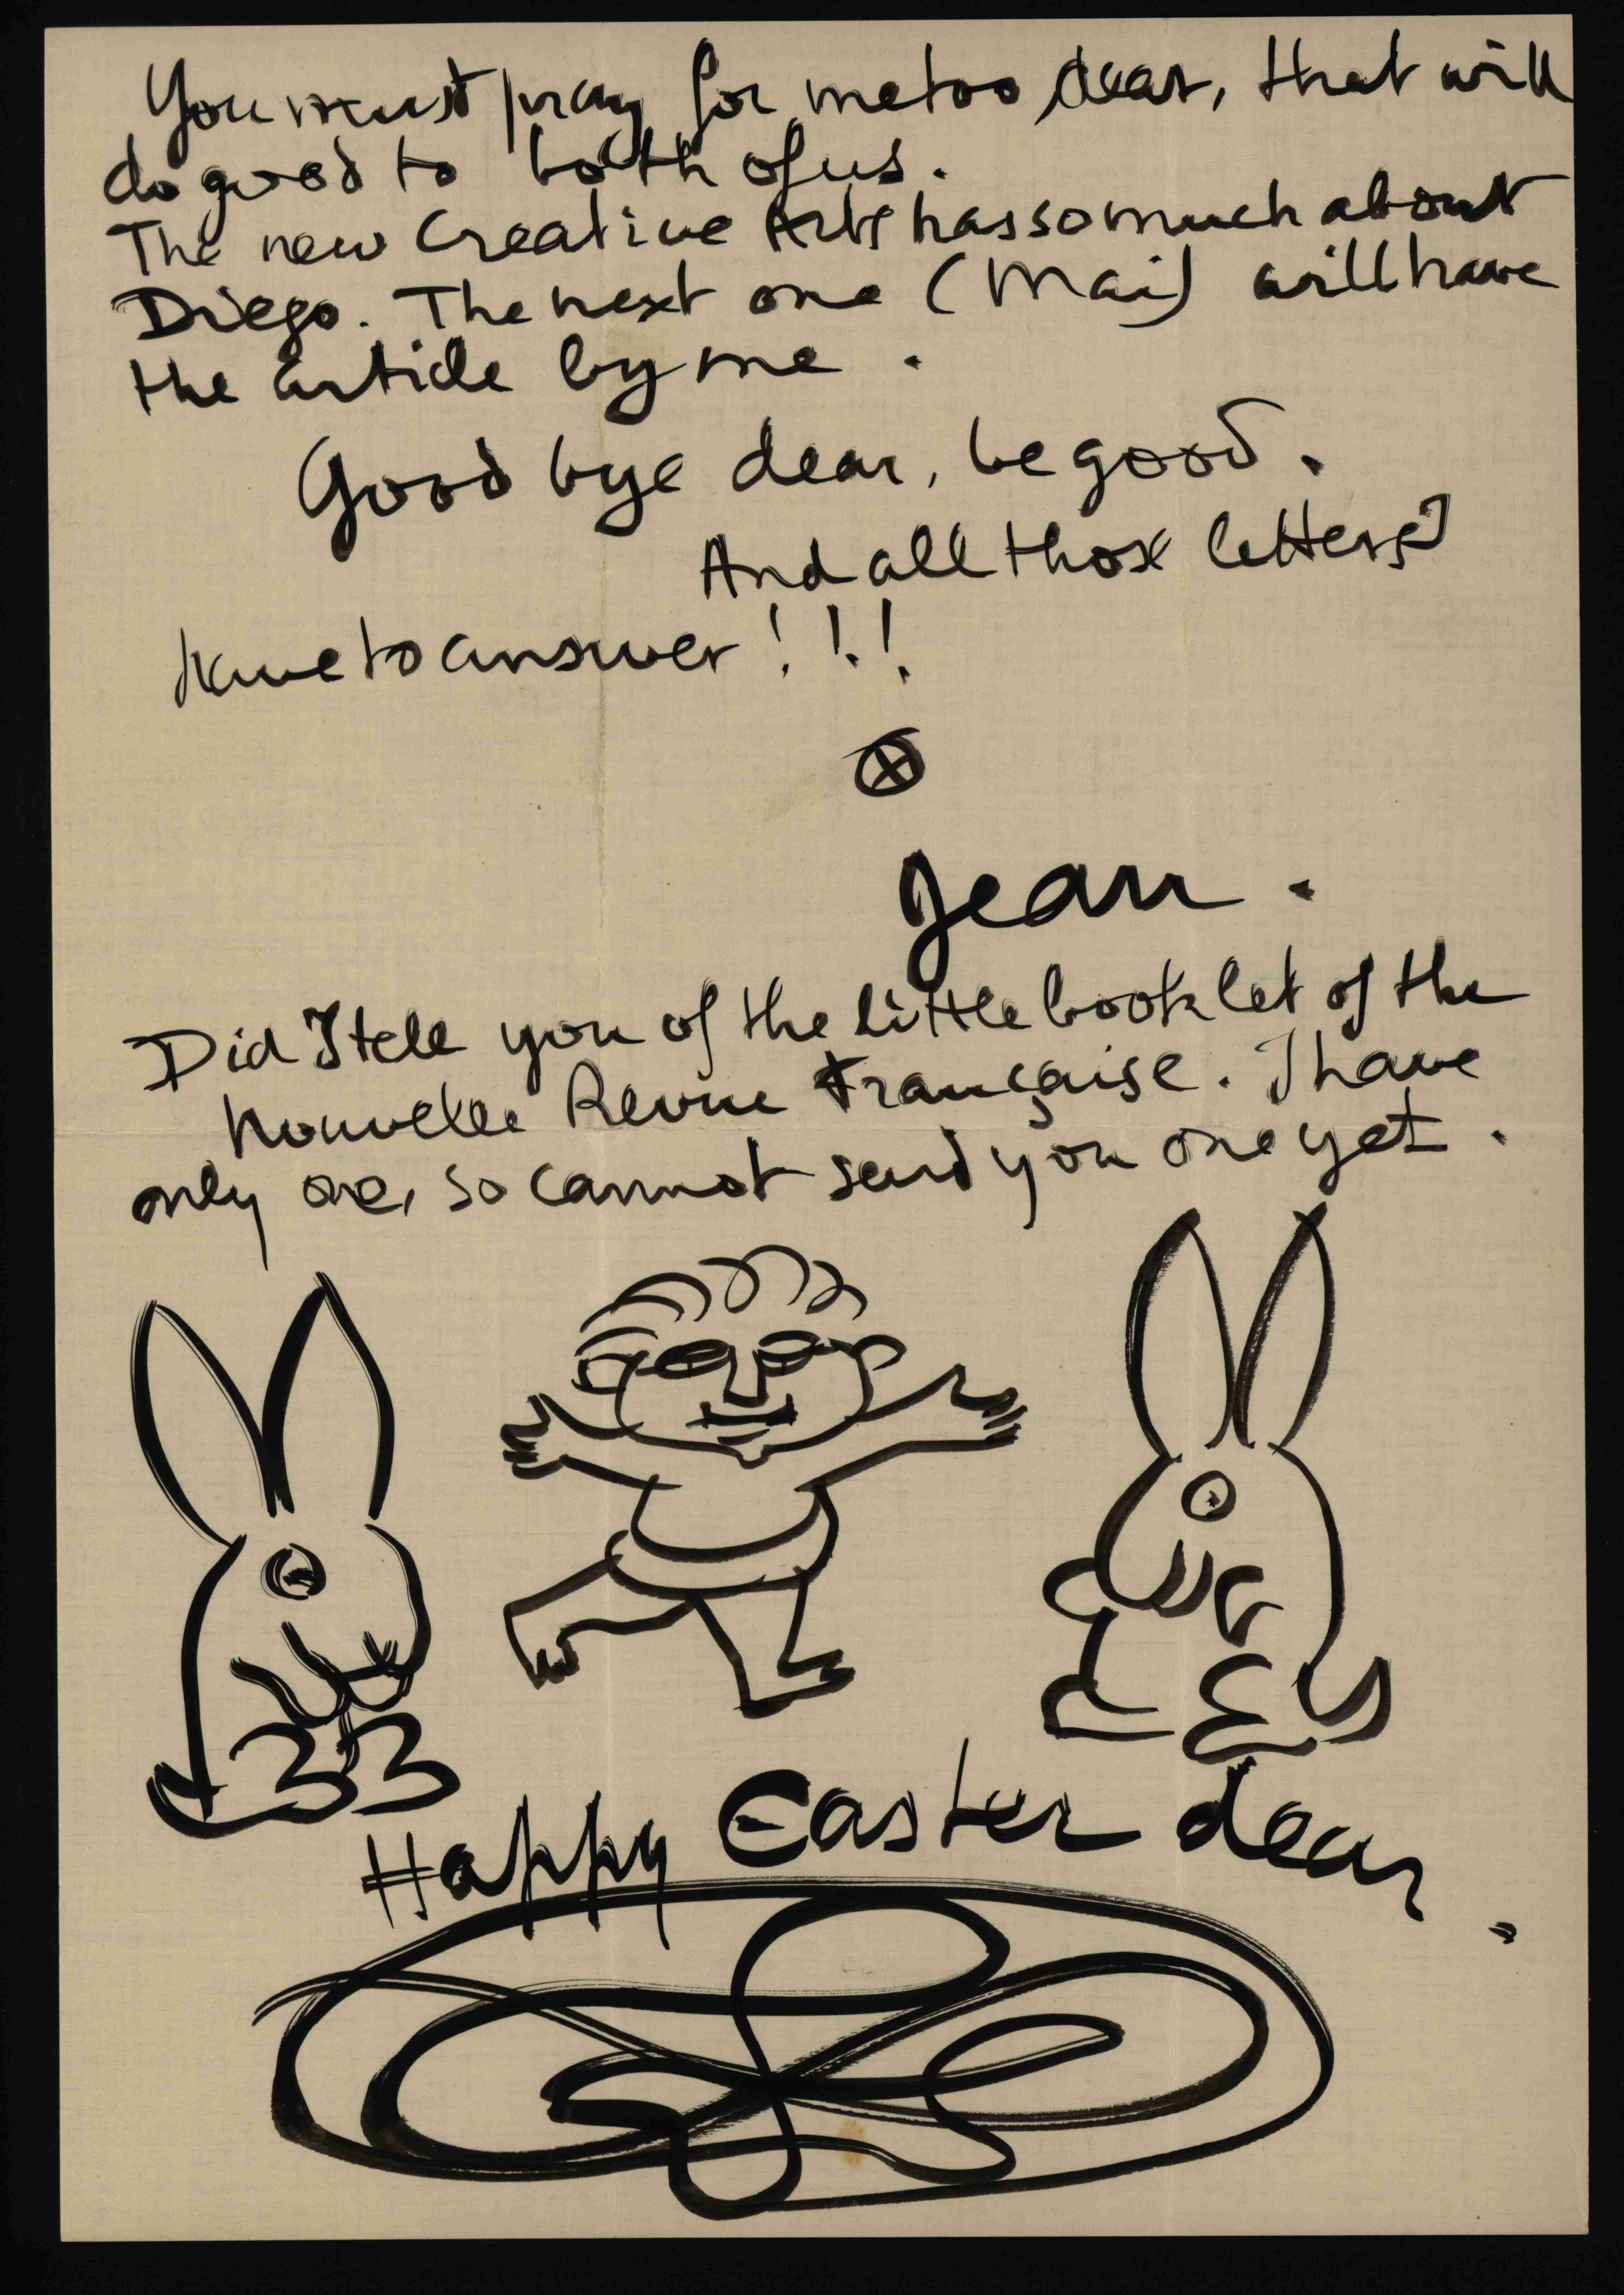 You must pray for me too dear, that will
do good to both of us.
The new Creative Arts has so much about
Diego. The next one (Mai) will have
the article by me.
Good bye dear, be good.
And all those letters I
have to answer!!!
Jean.
Did I tell you of the little booklet of the
Nouvelle Revue Française. I have
only one, so cannot send you one yet.
Happy Easter dear.